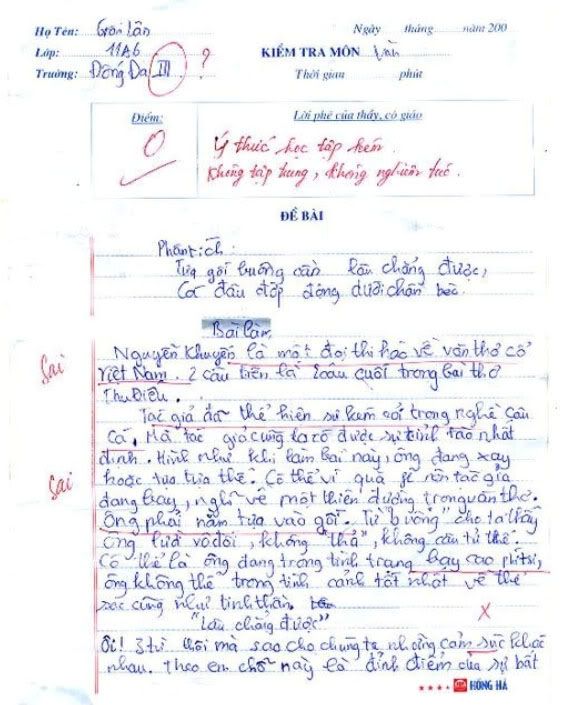 Họ Tên: Gôn Lân
Ngày tháng năm 200
Lớp: 11A6
KIỂM TRA MÔN Văn
Trường: Đống Đa III ?
Thời gian phút
Điểm:
Lời phê của thầy, cô giáo
0
Ý thức học tập kém.
Không tập trung, không nghiêm túc.
ĐỀ BÀI
Phân tích:
Tựa gối buông cần lâu chẳng được,
Cá đâu đớp động dưới chân bèo.
Bài làm
Nguyễn Khuyến là một đại thi hào về văn thơ cổ
sai
Việt Nam. 2 câu trên là 2 câu cuối trong bài thơ
Thu Điếu.
Tác giả đã thể hiện sự kém cỏi trong nghề câu
cá. Mà tác giả cũng ko có được sự tỉnh táo nhất
định. Hình như khi làm bài này, ông đang xay
sai
hoặc tựa thế. Có thể vì quá nên tác giả
đang bay, nghĩ về một thiên đường trong văn thơ.
Ông phải nằm tựa vào gối. Từ "buông" cho ta thấy
ông lười vô đối, không "thả", không câu tử thế.
Có thể là ông đang trong tình trạng bay cao
ông không thể trong tình cảnh tốt nhất về thể
xác cũng như tinh thần.
"Lâu chẳng được"
X
Ôi! 3 từ thôi mà sao cho chúng ta những cảm xúc khác
nhau. Theo em chỗ này là đỉnh điểm của sự bất
HỒNG HÀ